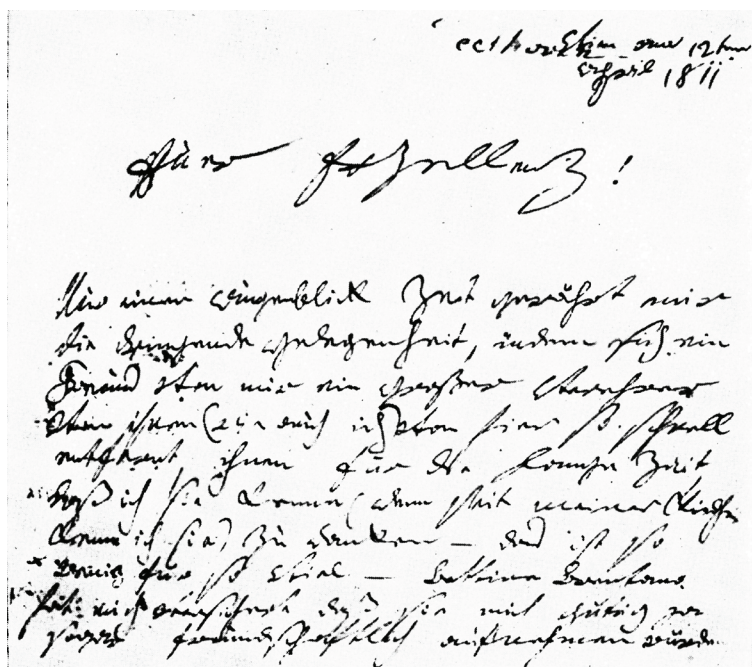 Wien am 12ten
April 1811
Euer Exzellenz!
Nur einen Augenblick Zeit gewährt mir
die dringende Gelegenheit, indem sich ein
Freund von mir ein großer Verehrer
von ihnen (wie auch ich) von hier so schnell
entfernt ihnen für die lange Zeit
daß ich sie kenne (denn seit meiner Kindheit
kenne ich sie) zu danken – das ist so
wenig für so viel – Bettine Brentano
hat mich versichert daß sie mich gütig ja
sogar freundschaftlich aufnehmen würden